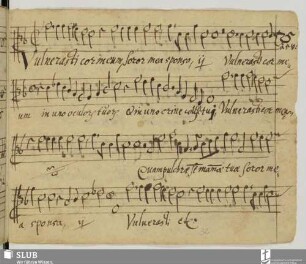 Vulnerasti cor meum soror mea sponsa, ij Vulnerasti cor me
um in uno oculor tuor & in uno crine colli tui Vulnerasti cor meum,
Quam pulchræ st mamma tua soror me
a sponsa, ij Vulnerasti etc
SLUB
Wir führen Wissen.